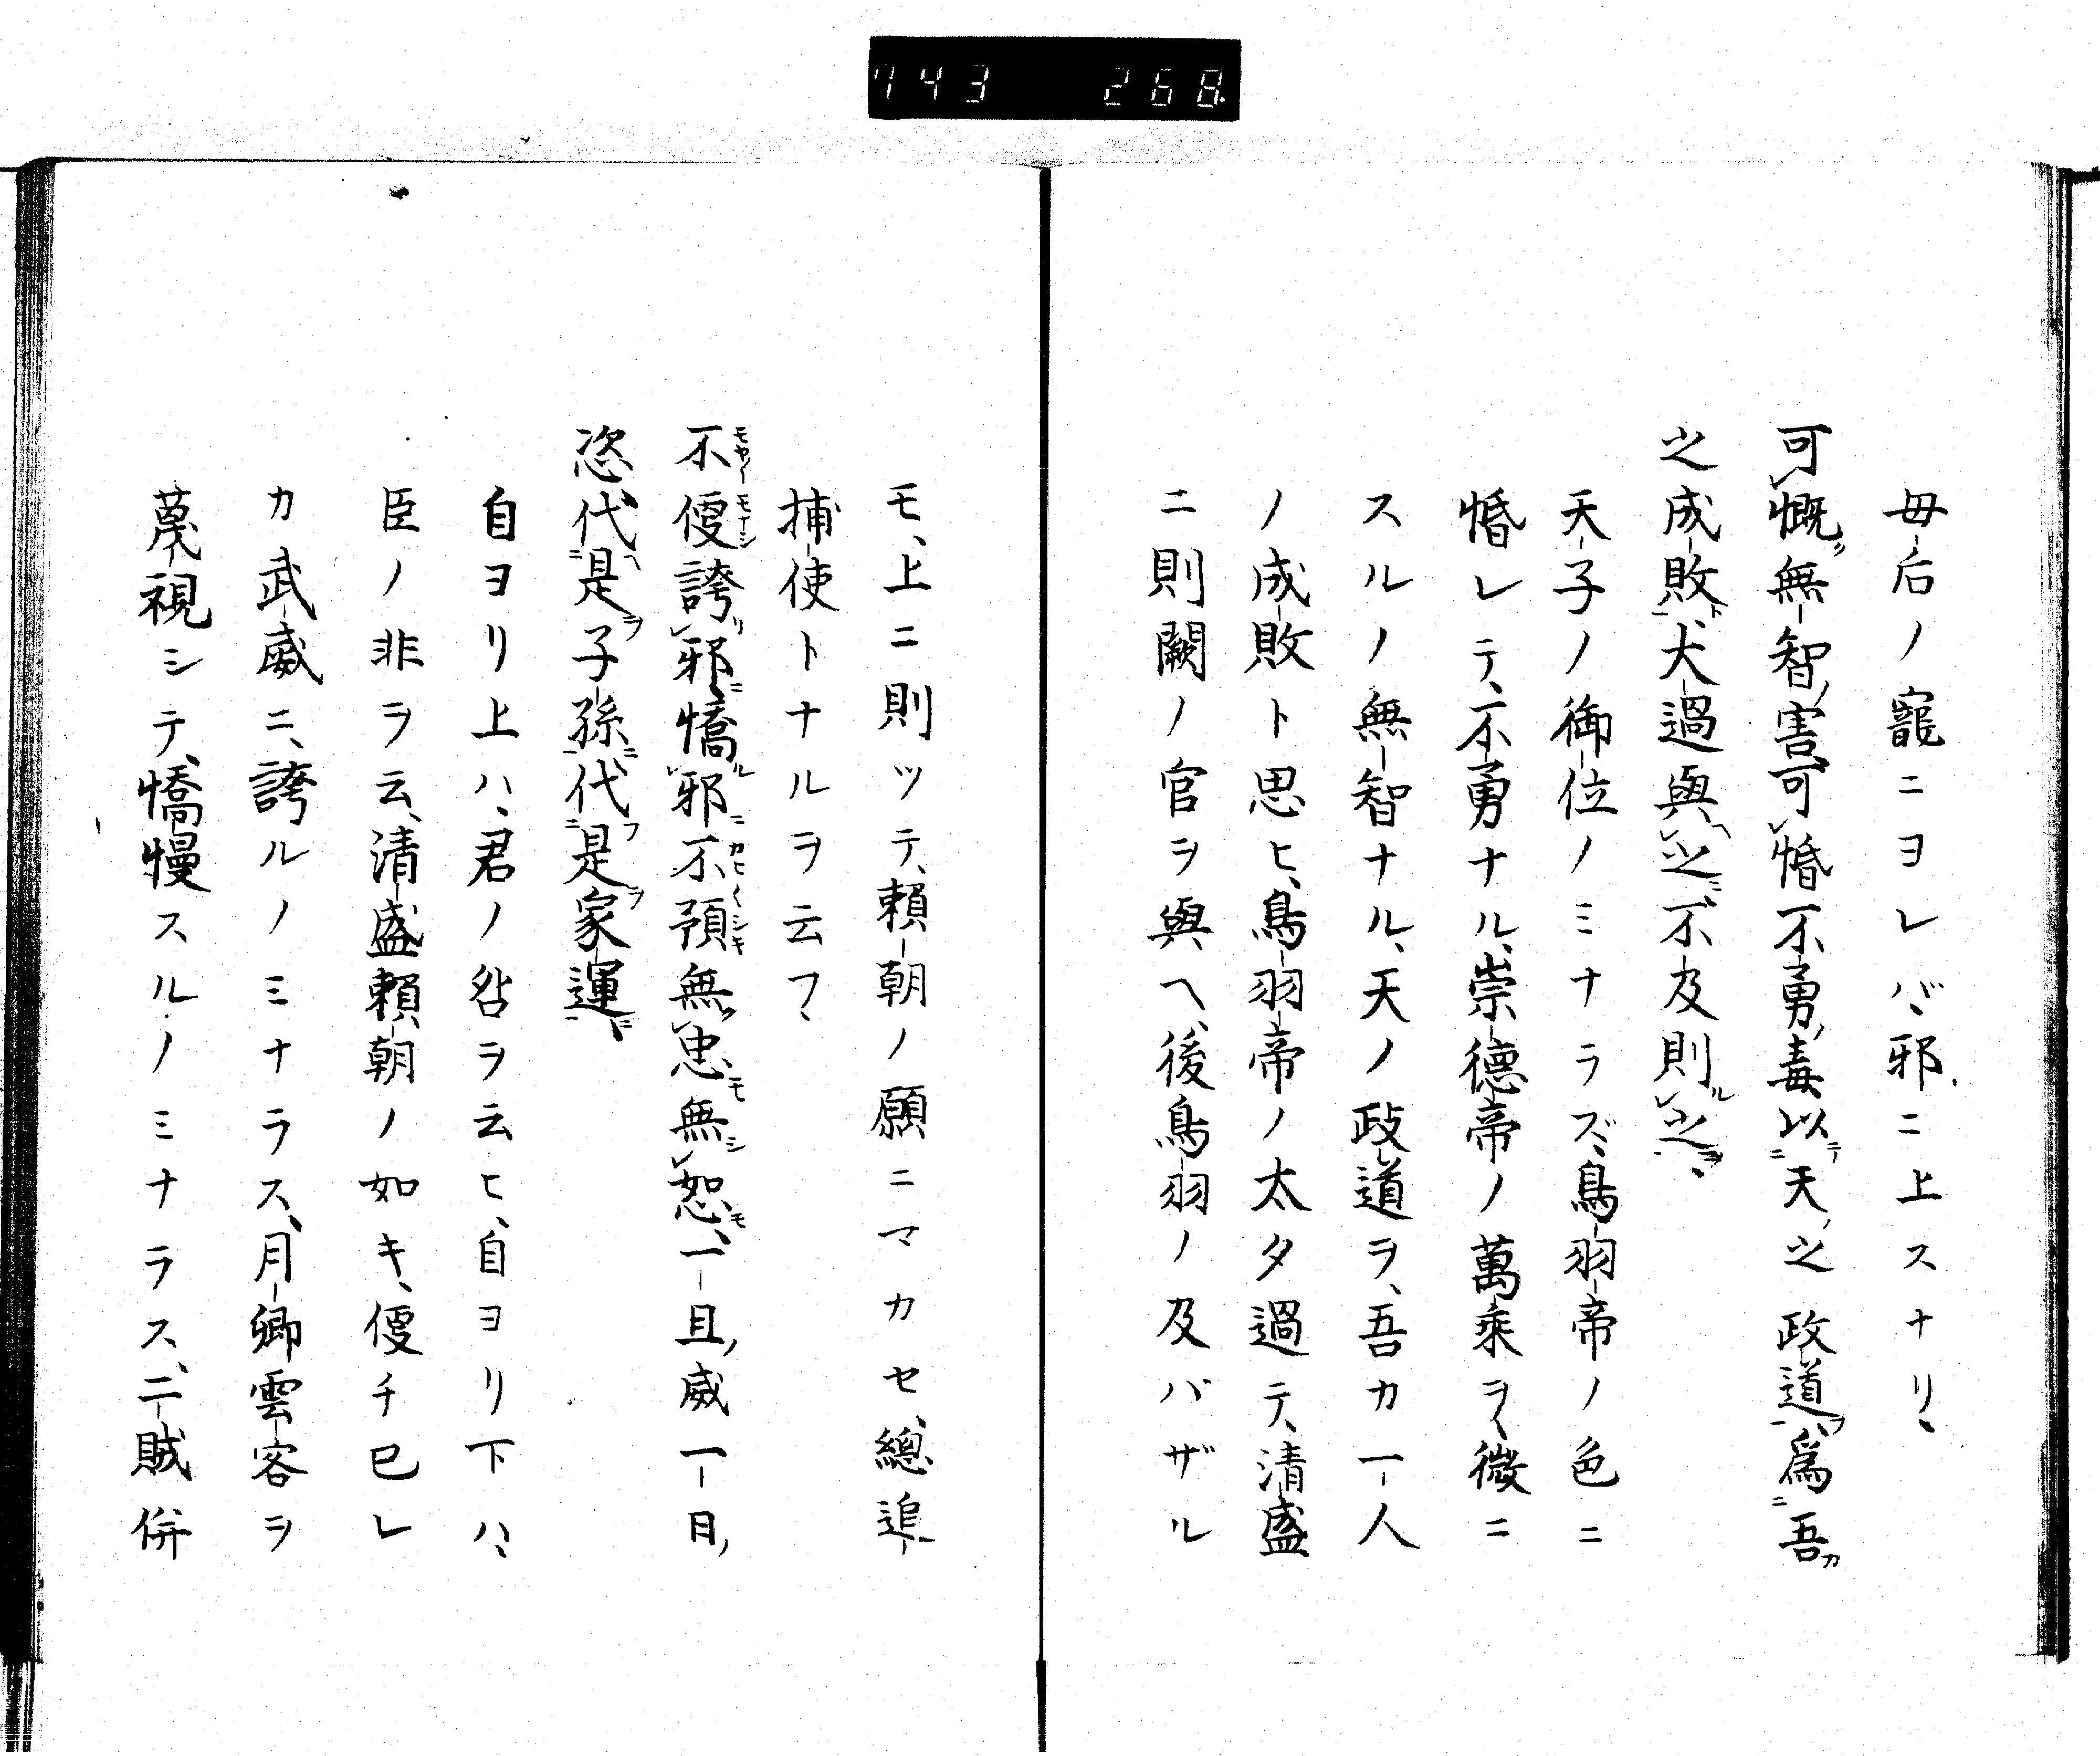 743 268
母后ノ寵ニヨレバ、邪ニ上スナリ、
可慨無智害可惛不勇毒以天之政道爲吾
之成敗犬過與之不及則之、
天子ノ御位ノミナラズ、鳥羽帝ノ色ニ
惛レテ、不勇ナル、崇德帝ノ萬乘ヲ、微ニ
スルノ無智ナル、天ノ政道ヲ、吾カ一人
ノ成敗ト思ヒ、鳥羽帝ノ太タ過テ、清盛
ニ則闕ノ官ヲ與ヘ、後鳥羽ノ及バザル
モ、上ニ則ツテ、賴朝ノ願ニマカセ、總追
捕使トナルヲ云フ、
不便誇邪憍邪不預無忠無恕、一旦威一日
恣代是子孫代是家運、
自ヨリ上ハ、君ノ咎ヲ云ヒ、自ヨリ下ハ、
臣ノ非ヲ云、清盛賴朝ノ如キ、便チ巳レ
カ武威ニ、誇ルノミナラス、月卿雲客ヲ
蔑視シテ、憍慢スルノミナラス、二賊併